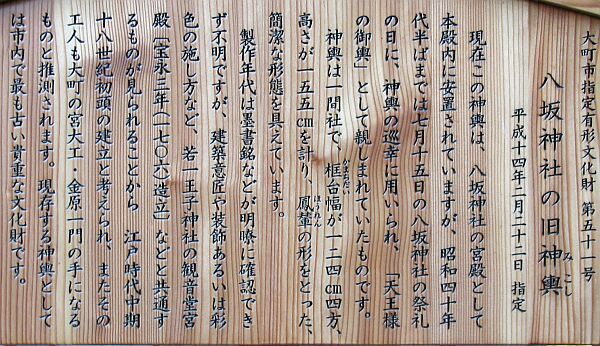 大町市指定有形文化財 第五十一号
八坂神社の旧神輿
みこし
平成十四年二月二十二日 指定
現在この神輿は、八坂神社の宮殿として
本殿内に安置されていますが、昭和四十年
代半ばまでは七月十五日の八坂神社の祭礼
の日に、神輿の巡幸に用いられ、「天王様
の御輿」として親しまれていたものです。
神輿は一間社で、框台幅が一二四㎝四方、
かまちだい
高さが一五五㎝を計り、鳳輦の形をとった、
ほうれん
簡潔な形態を具えています。
製作年代は墨書銘などが明瞭に確認でき
ず不明ですが、建築意匠や装飾あるいは彩
色の施し方など、若一王子神社の観音堂宮
殿〔宝永三年(一七〇六)造立〕などと共通す
るものが見られることから 江戸時代中期
十八世紀初頭の建立と考えられ、またその
工人も大町の宮大工・金原一門の手になる
ものと推測されます。現存する神輿として
は市内で最も古い貴重な文化財です。